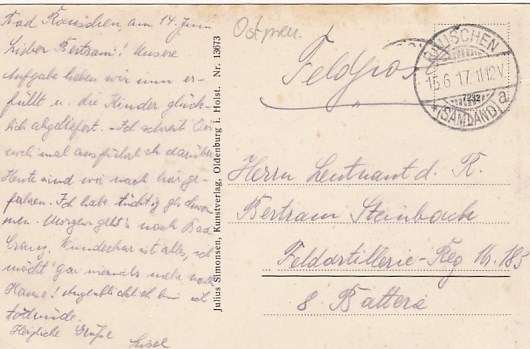 Bad Rauschen, am 14. Juni
Lieber Bertram! Unsere
Aufgabe haben wir nun er-
füllt u. die Kinder glück-
lich abgeliefert. Ich schreib Dir
noch mal ausführlich darüber
Heute sind wir nach hier ge-
fahren. Ich habe tüchtig geschwom-
men. Morgen geht's nach Bad
Cranz. Wunderbar ist alles, ich
möcht' gar niemals mehr nach
Hause! Augenblicklich bin ich
totmüde.
Herzliche Grüße
Liesel
Julius Simonsen, Kunstverlag, Oldenburg i. Holst. Nr. 13673
Ostpreu.
Feldpost
RAUSCHEN
15.6.17. 11-12V.
*(SAMLAND) a
Herrn Leutnant d. R.
Bertram Steinbach
Feldartillerie-Reg Nr. 185
8. Batterie